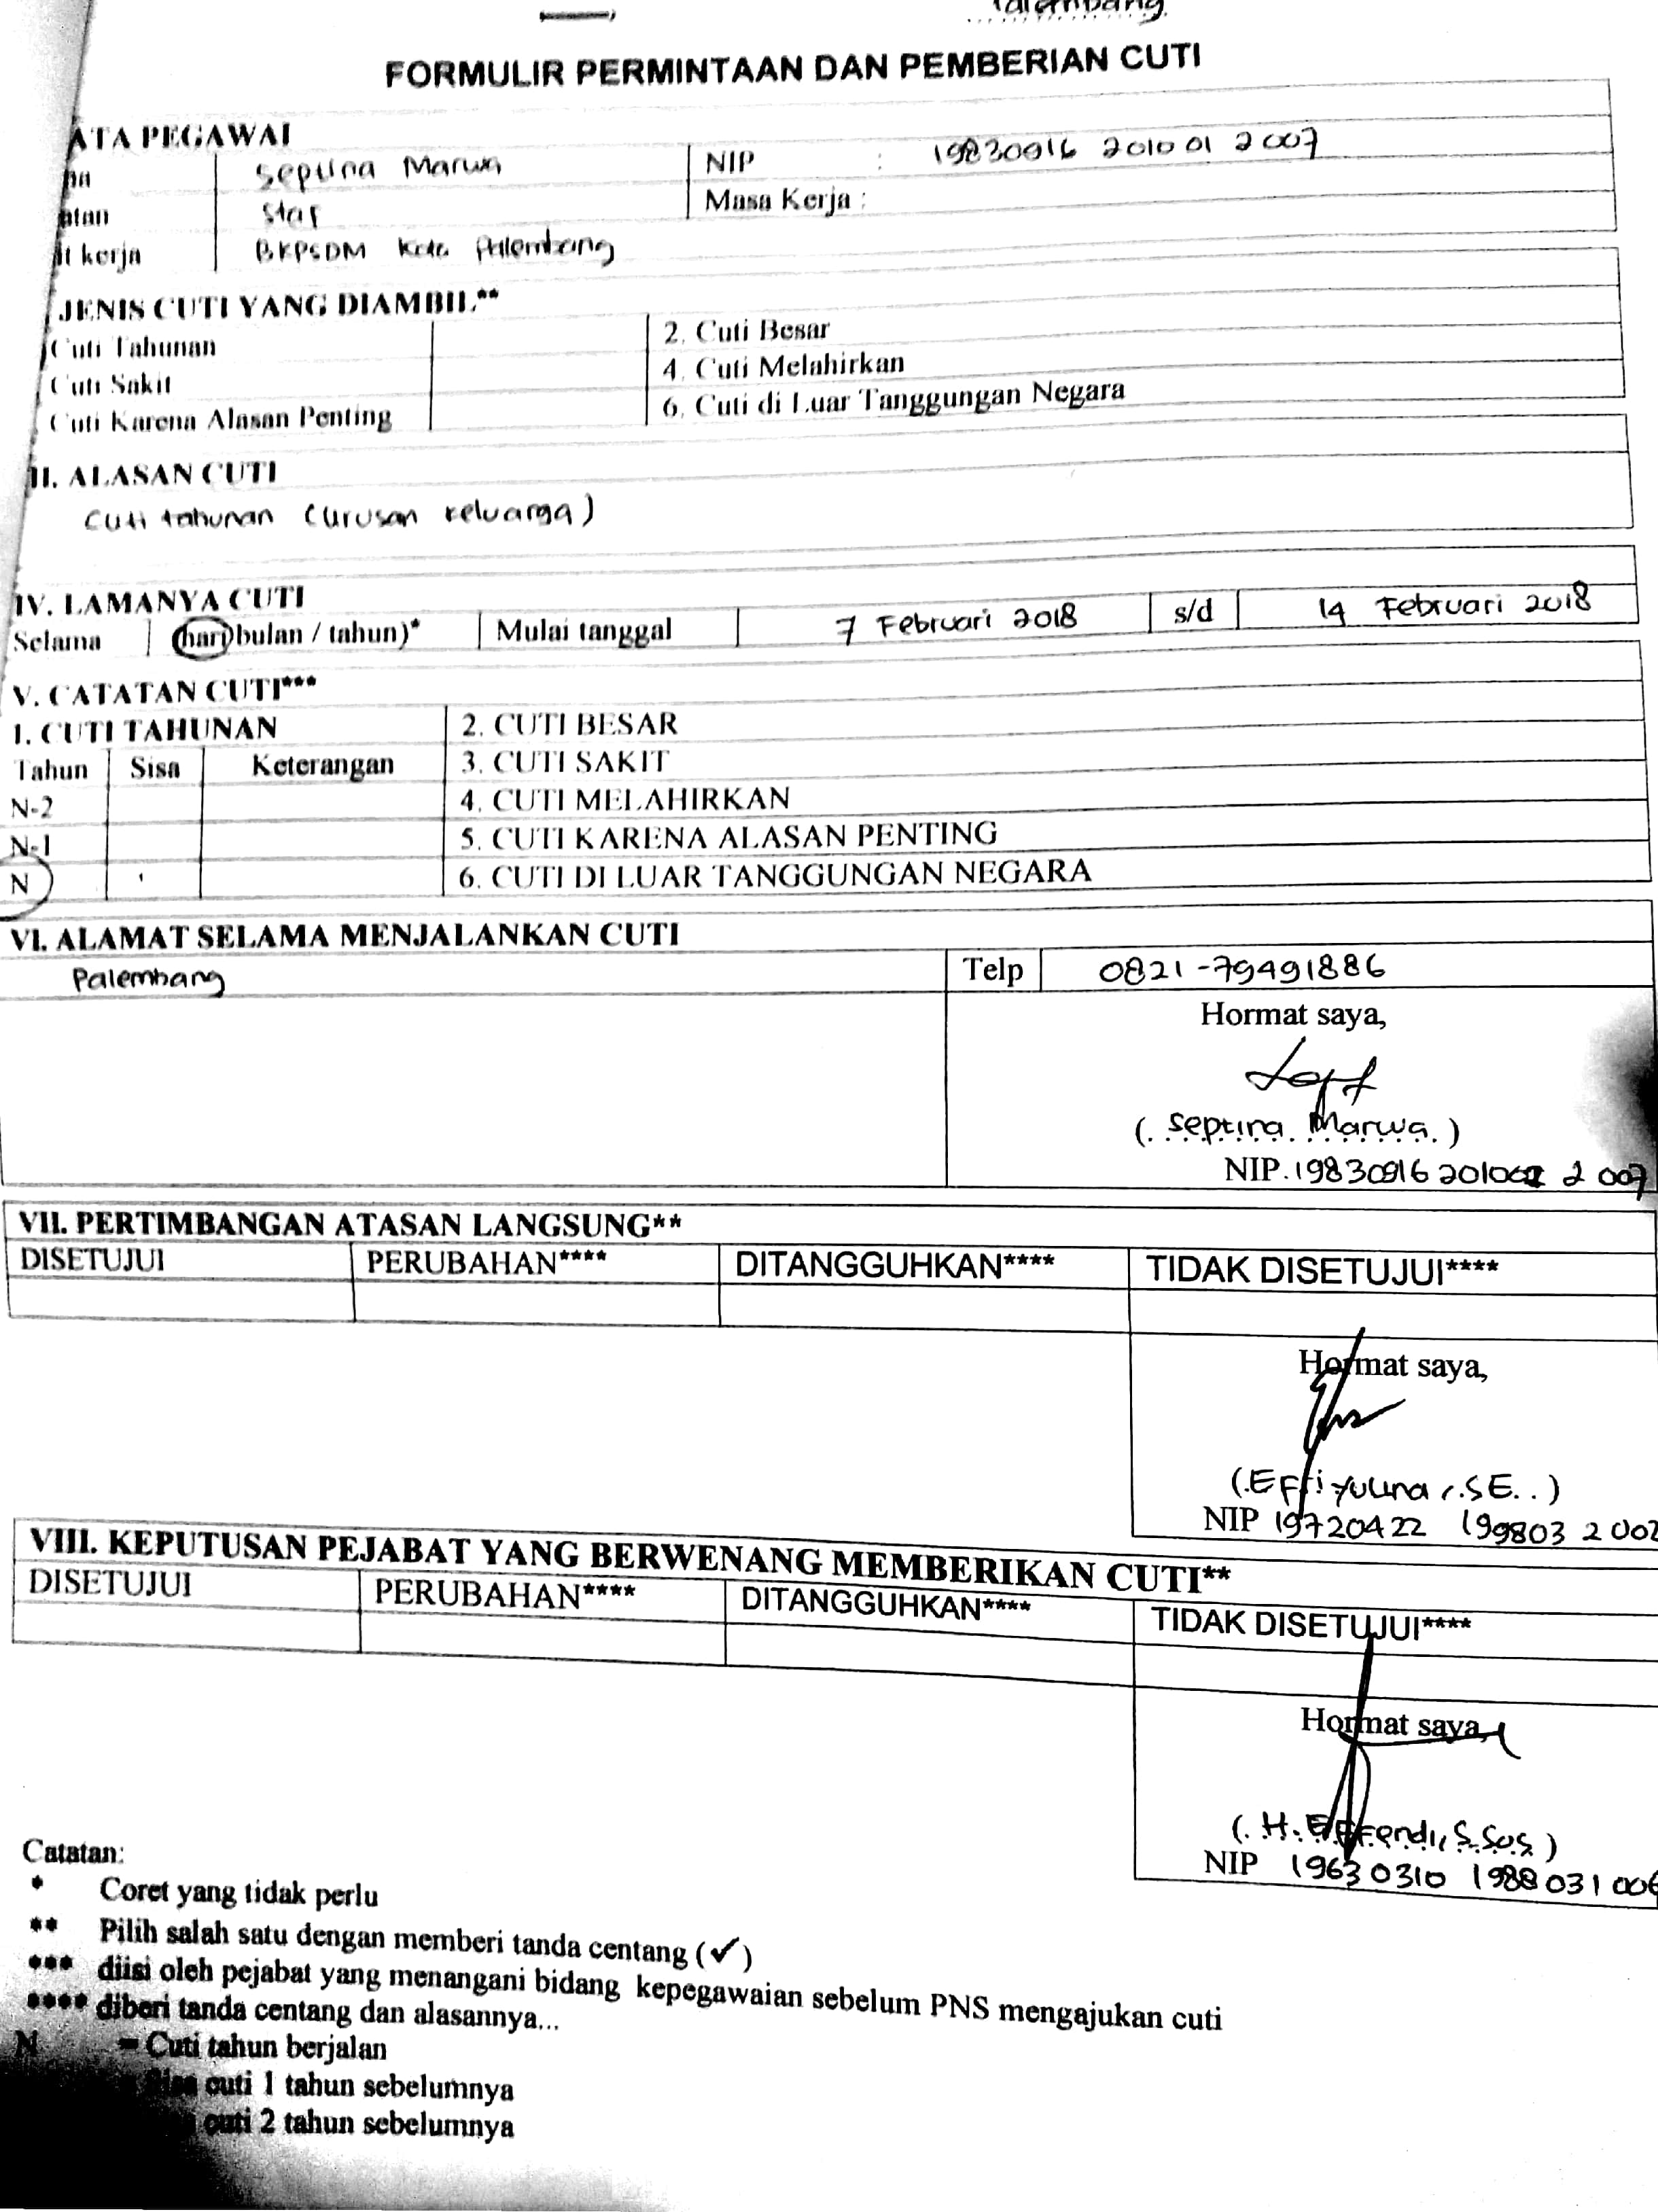 Palembang
FORMULIR PERMINTAAN DAN PEMBERIAN CUTI
ATA PEGAWAI
Septina Marwa NIP : 19830916 201001 2 007
Staf Masa Kerja :
kerja BKPSDM Kota Palembang
JENIS CUTI YANG DIAMBIL**
Cuti Tahunan 2. Cuti Besar
Cuti Sakit 4. Cuti Melahirkan
Cuti Karena Alasan Penting 6. Cuti di Luar Tanggungan Negara
II. ALASAN CUTI
Cuti tahunan (urusan keluarga)
IV. LAMANYA CUTI
Selama (hari) bulan / tahun)* Mulai tanggal 7 Februari 2018 s/d 14 Februari 2018
V. CATATAN CUTI***
1. CUTI TAHUNAN 2. CUTI BESAR
Tahun Sisa Keterangan 3. CUTI SAKIT
N-2 4. CUTI MELAHIRKAN
N-1 5. CUTI KARENA ALASAN PENTING
N 6. CUTI DI LUAR TANGGUNGAN NEGARA
VI. ALAMAT SELAMA MENJALANKAN CUTI
Palembang Telp 0821-79491886
Hormat saya,
(. Septina Marwa. )
NIP. 19830916 201001 2 007
VII. PERTIMBANGAN ATASAN LANGSUNG**
DISETUJUI PERUBAHAN**** DITANGGUHKAN**** TIDAK DISETUJUI****
Hormat saya,
(.Effi Yulina, SE..)
NIP 19720422 199803 2 002
VIII. KEPUTUSAN PEJABAT YANG BERWENANG MEMBERIKAN CUTI**
DISETUJUI PERUBAHAN**** DITANGGUHKAN**** TIDAK DISETUJUI****
Hormat saya,
(. H. Effendi, S.Sos )
NIP 19630310 198803 1 006
Catatan:
* Coret yang tidak perlu
** Pilih salah satu dengan memberi tanda centang (✓)
*** diisi oleh pejabat yang menangani bidang kepegawaian sebelum PNS mengajukan cuti
**** diberi tanda centang dan alasannya...
N = Cuti tahun berjalan
Sisa cuti 1 tahun sebelumnya
cuti 2 tahun sebelumnya